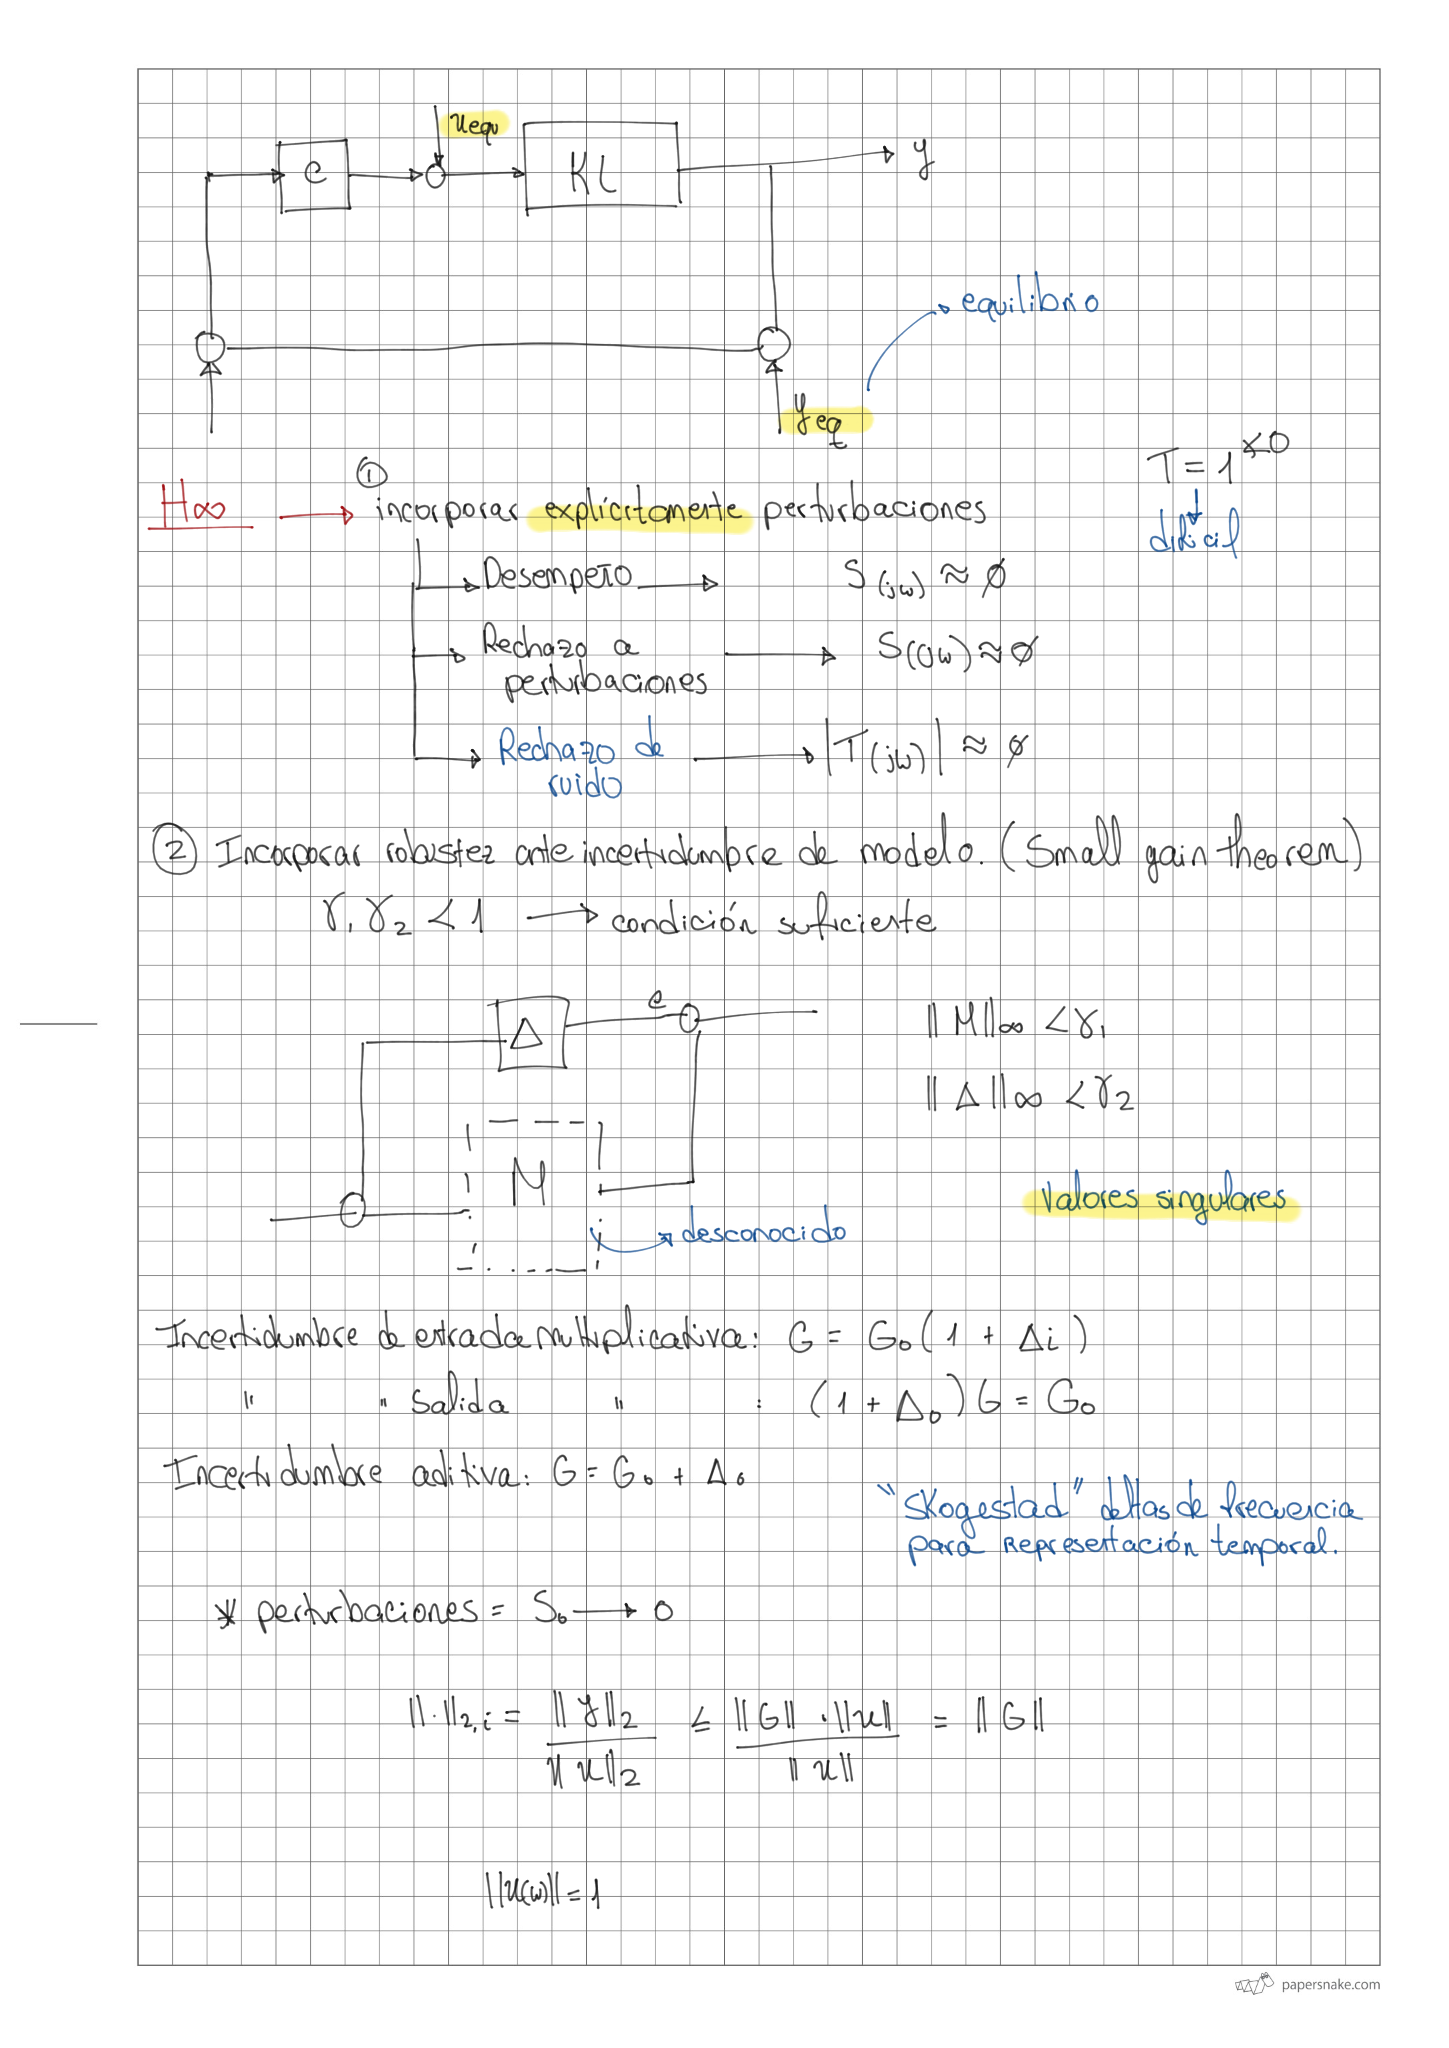 uequ
C
KL
y
equilibrio
yeq
T = 1 ∠0
difícil
H∞ → ① incorporar explícitamente perturbaciones
Desempeño → S(jω) ≈ ∅
Rechazo a perturbaciones → S(jω) ≈ ∅
Rechazo de ruido → |T(jω)| ≈ ∅
② Incorporar robustez ante incertidumbre de modelo. (Small gain theorem)
γ₁ γ₂ < 1 → condición suficiente
Δ
e
||M||∞ < γ₁
||Δ||∞ < γ₂
M
Valores singulares
desconocido
Incertidumbre de entrada multiplicativa: G = G₀(1 + Δi)
" " Salida " : (1 + Δ₀)G = G₀
Incertidumbre aditiva: G = G₀ + Δ₀
"Skogestad" deltas de frecuencia
para representación temporal.
* perturbaciones = S₀ → 0
||·||₂,ᵢ = ||y||₂ / ||u||₂ ≤ ||G||·||u|| / ||u|| = ||G||
||u(ω)|| = 1
papersnake.com